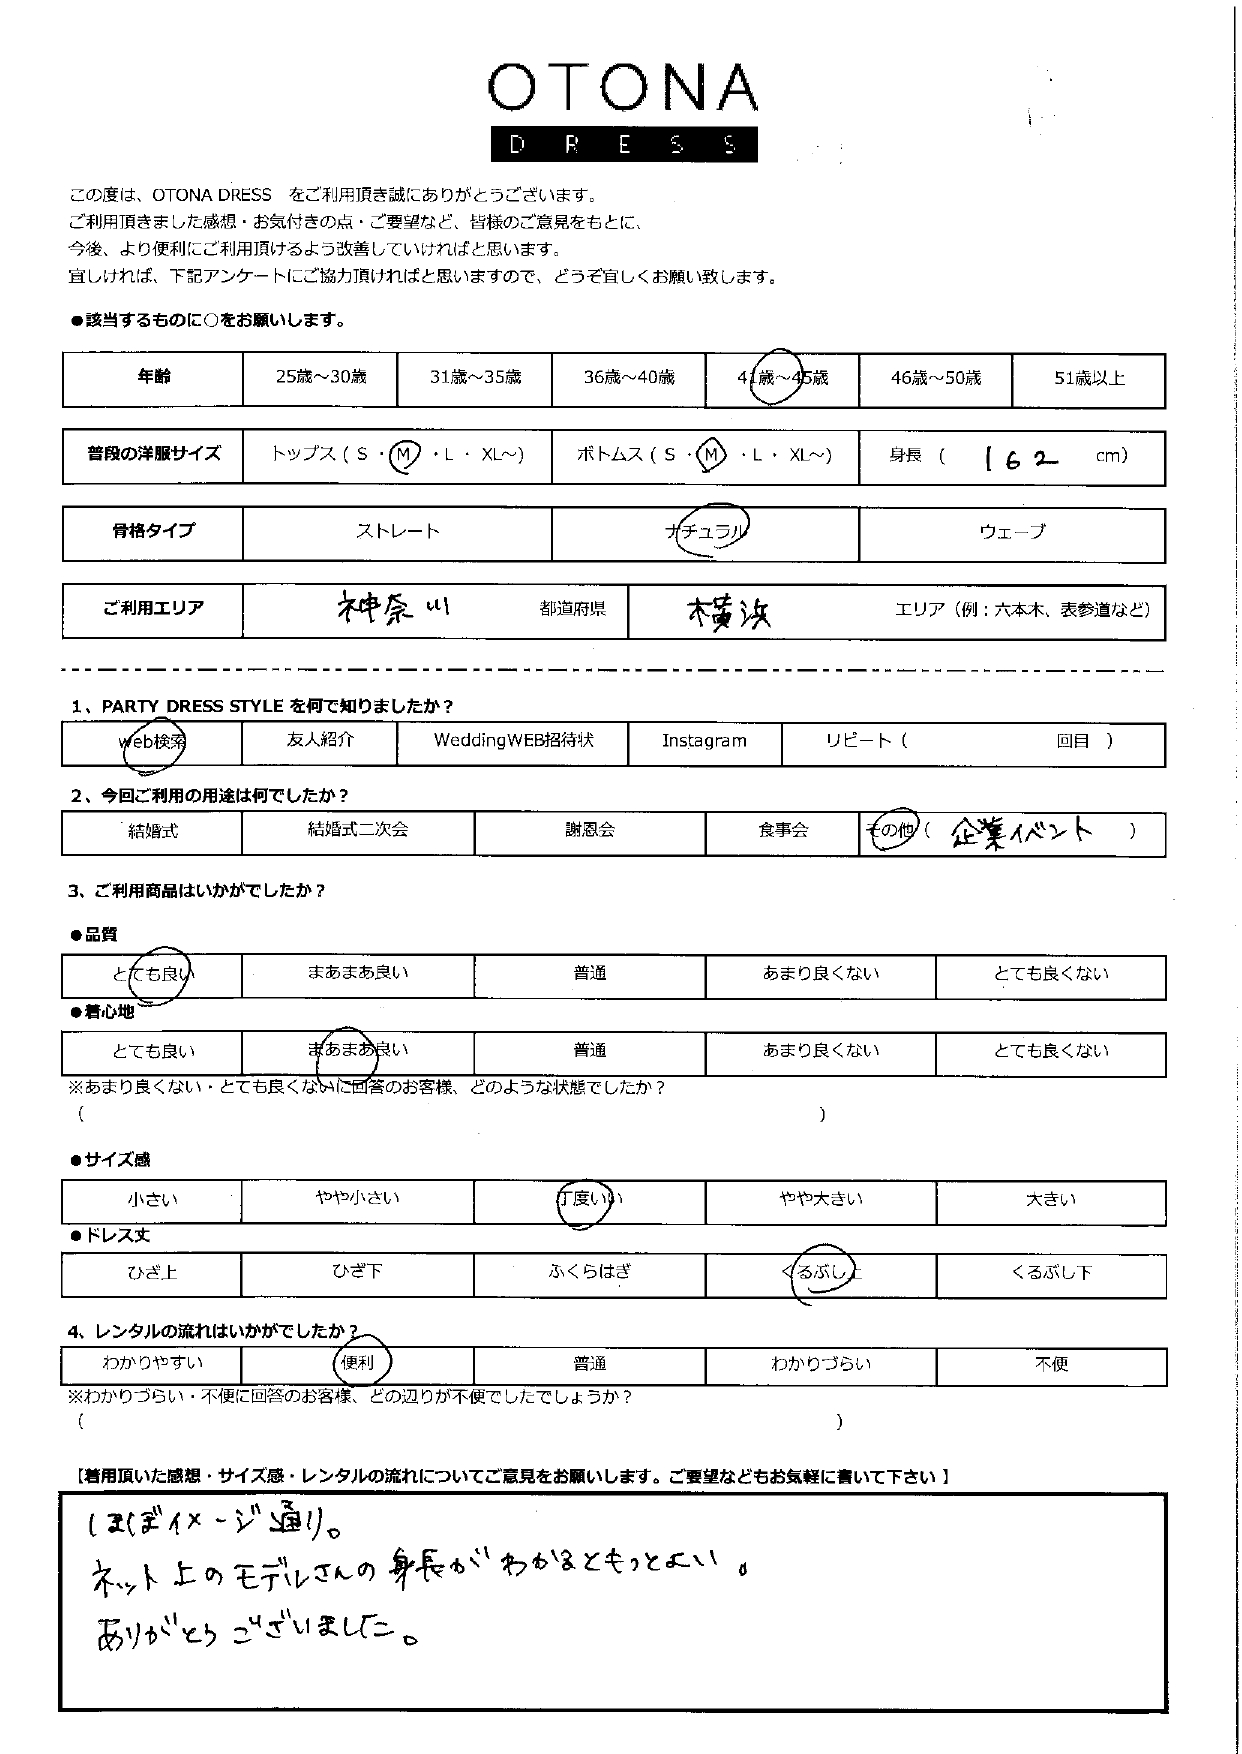 OTONA
DRESS
この度は、OTONA DRESS をご利用頂き誠にありがとうございます。
ご利用頂きました感想・お気付きの点・ご要望など、皆様のご意見をもとに、
今後、より便利にご利用頂けるよう改善していければと思います。
宜しければ、下記アンケートにご協力頂ければと思いますので、どうぞ宜しくお願い致します。
●該当するものに○をお願いします。
年齢 25歳～30歳 31歳～35歳 36歳～40歳 41歳～45歳 46歳～50歳 51歳以上
普段の洋服サイズ トップス ( S ・ M ・ L ・ XL～) ボトムス ( S ・ M ・ L ・ XL～) 身長 ( 162 cm)
骨格タイプ ストレート ナチュラル ウェーブ
ご利用エリア 神奈川 都道府県 横浜 エリア（例：六本木、表参道など）
1、PARTY DRESS STYLE を何で知りましたか？
web検索 友人紹介 WeddingWEB招待状 Instagram リピート ( 回目 )
2、今回ご利用の用途は何でしたか？
結婚式 結婚式二次会 謝恩会 食事会 その他 ( 企業イベント )
3、ご利用商品はいかがでしたか？
●品質
とても良い まあまあ良い 普通 あまり良くない とても良くない
●着心地
とても良い まあまあ良い 普通 あまり良くない とても良くない
※あまり良くない・とても良くないに回答のお客様、どのような状態でしたか？
( )
●サイズ感
小さい やや小さい 丁度いい やや大きい 大きい
●ドレス丈
ひざ上 ひざ下 ふくらはぎ くるぶし上 くるぶし下
4、レンタルの流れはいかがでしたか？
わかりやすい 便利 普通 わかりづらい 不便
※わかりづらい・不便に回答のお客様、どの辺りが不便でしたでしょうか？
( )
【着用頂いた感想・サイズ感・レンタルの流れについてご意見をお願いします。ご要望などもお気軽に書いて下さい】
ほぼイメージ通り。
ネット上のモデルさんの身長がわかるともっとよい。
ありがとうございました。